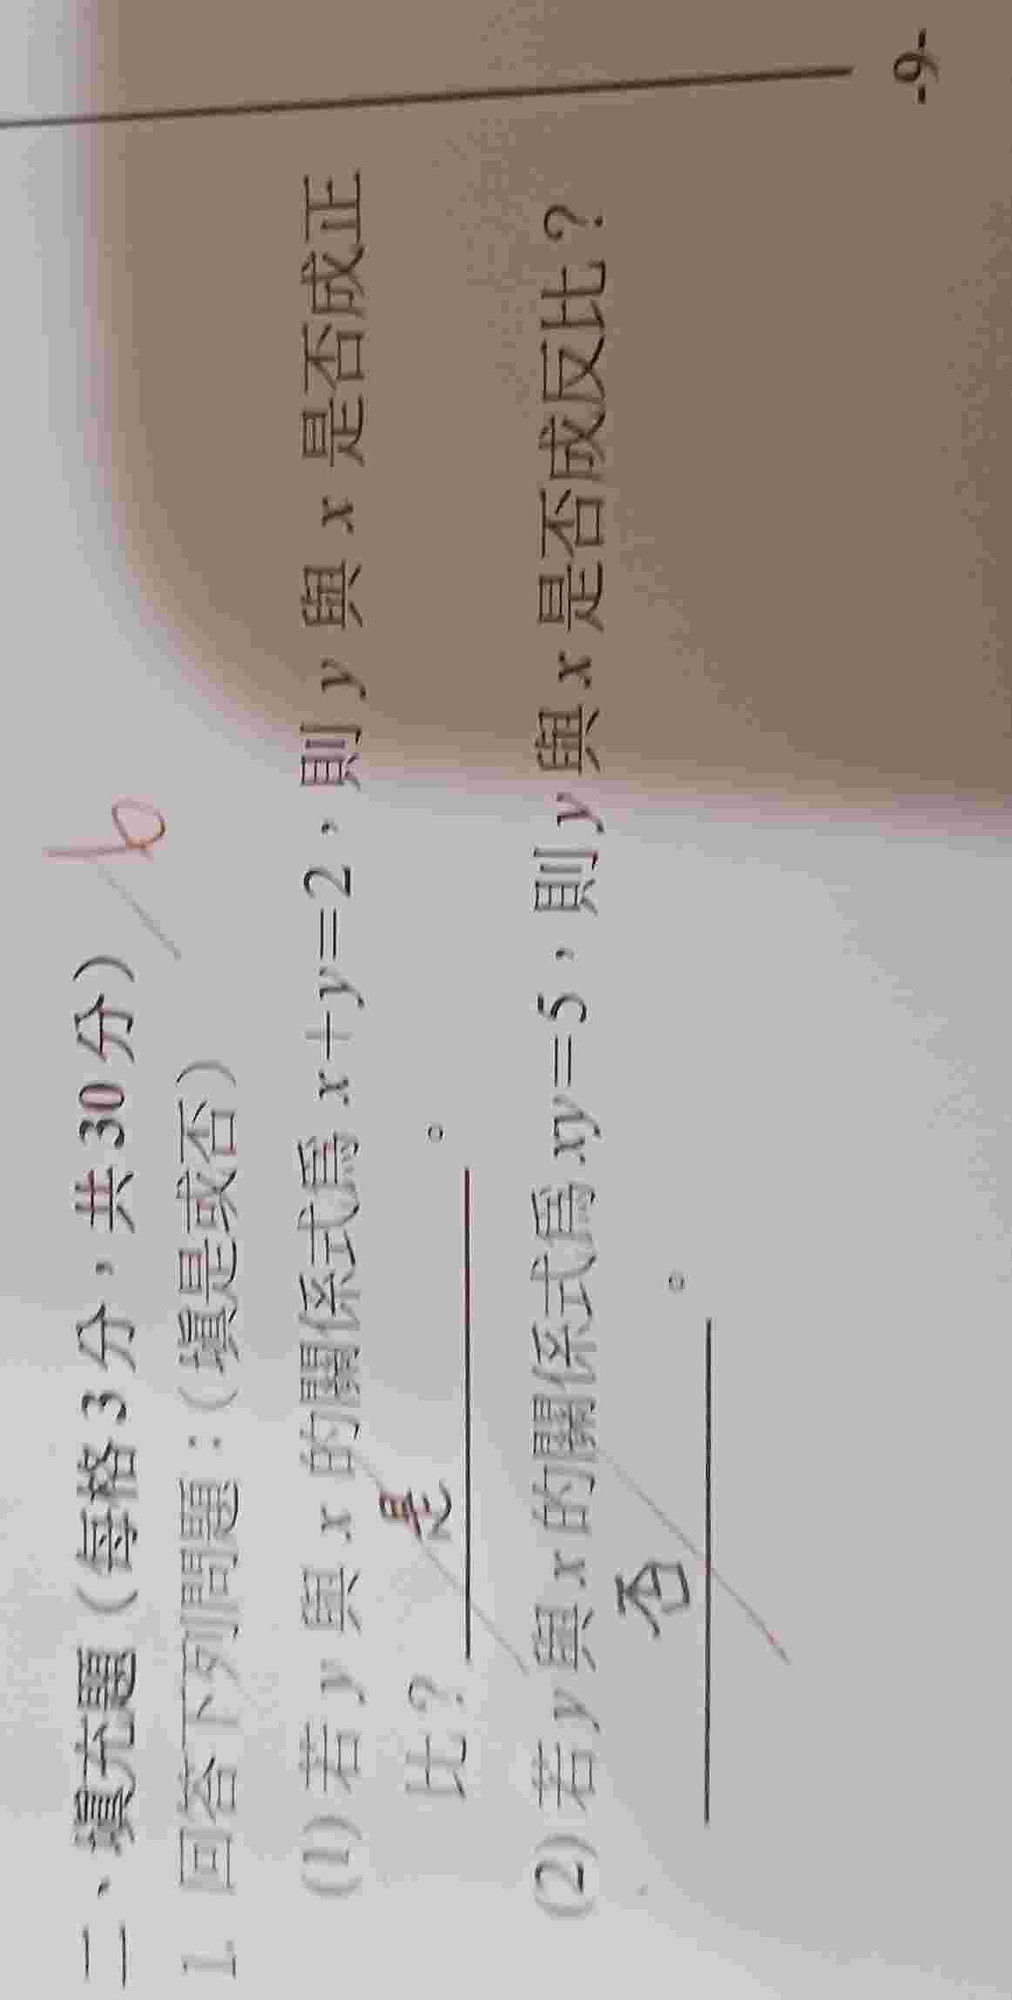 二、填充題（每格3分，共30分） -6
1. 回答下列問題：（填是或否）
(1) 若 y 與 x 的關係式為 x＋y＝2，則 y 與 x 是否成正
比？ 是 。
(2) 若 y 與 x 的關係式為 xy＝5，則 y 與 x 是否成反比？
否 。
-9-